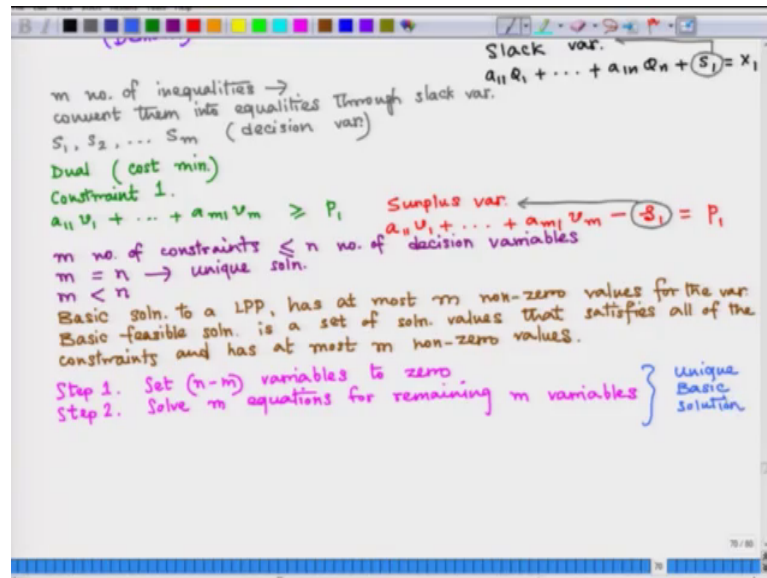 Slack var.
a11 Q1 + ... + a1n Qn + S1 = X1
m no. of inequalities →
convert them into equalities through slack var.
S1, S2, ... Sm (decision var.)
Dual (cost min.)
Constraint 1.
a11 v1 + ... + am1 vm ≥ P1
Surplus var.
a11 v1 + ... + am1 vm - S1 = P1
m no. of constraints ≤ n no. of decision variables
m = n → unique soln.
m < n
Basic soln. to a LPP, has at most m non-zero values for the var.
Basic feasible soln. is a set of soln. values that satisfies all of the
constraints and has at most m non-zero values.
Step 1. Set (n-m) variables to zero
Step 2. Solve m equations for remaining m variables
Unique
Basic
solution
70 / 80
70